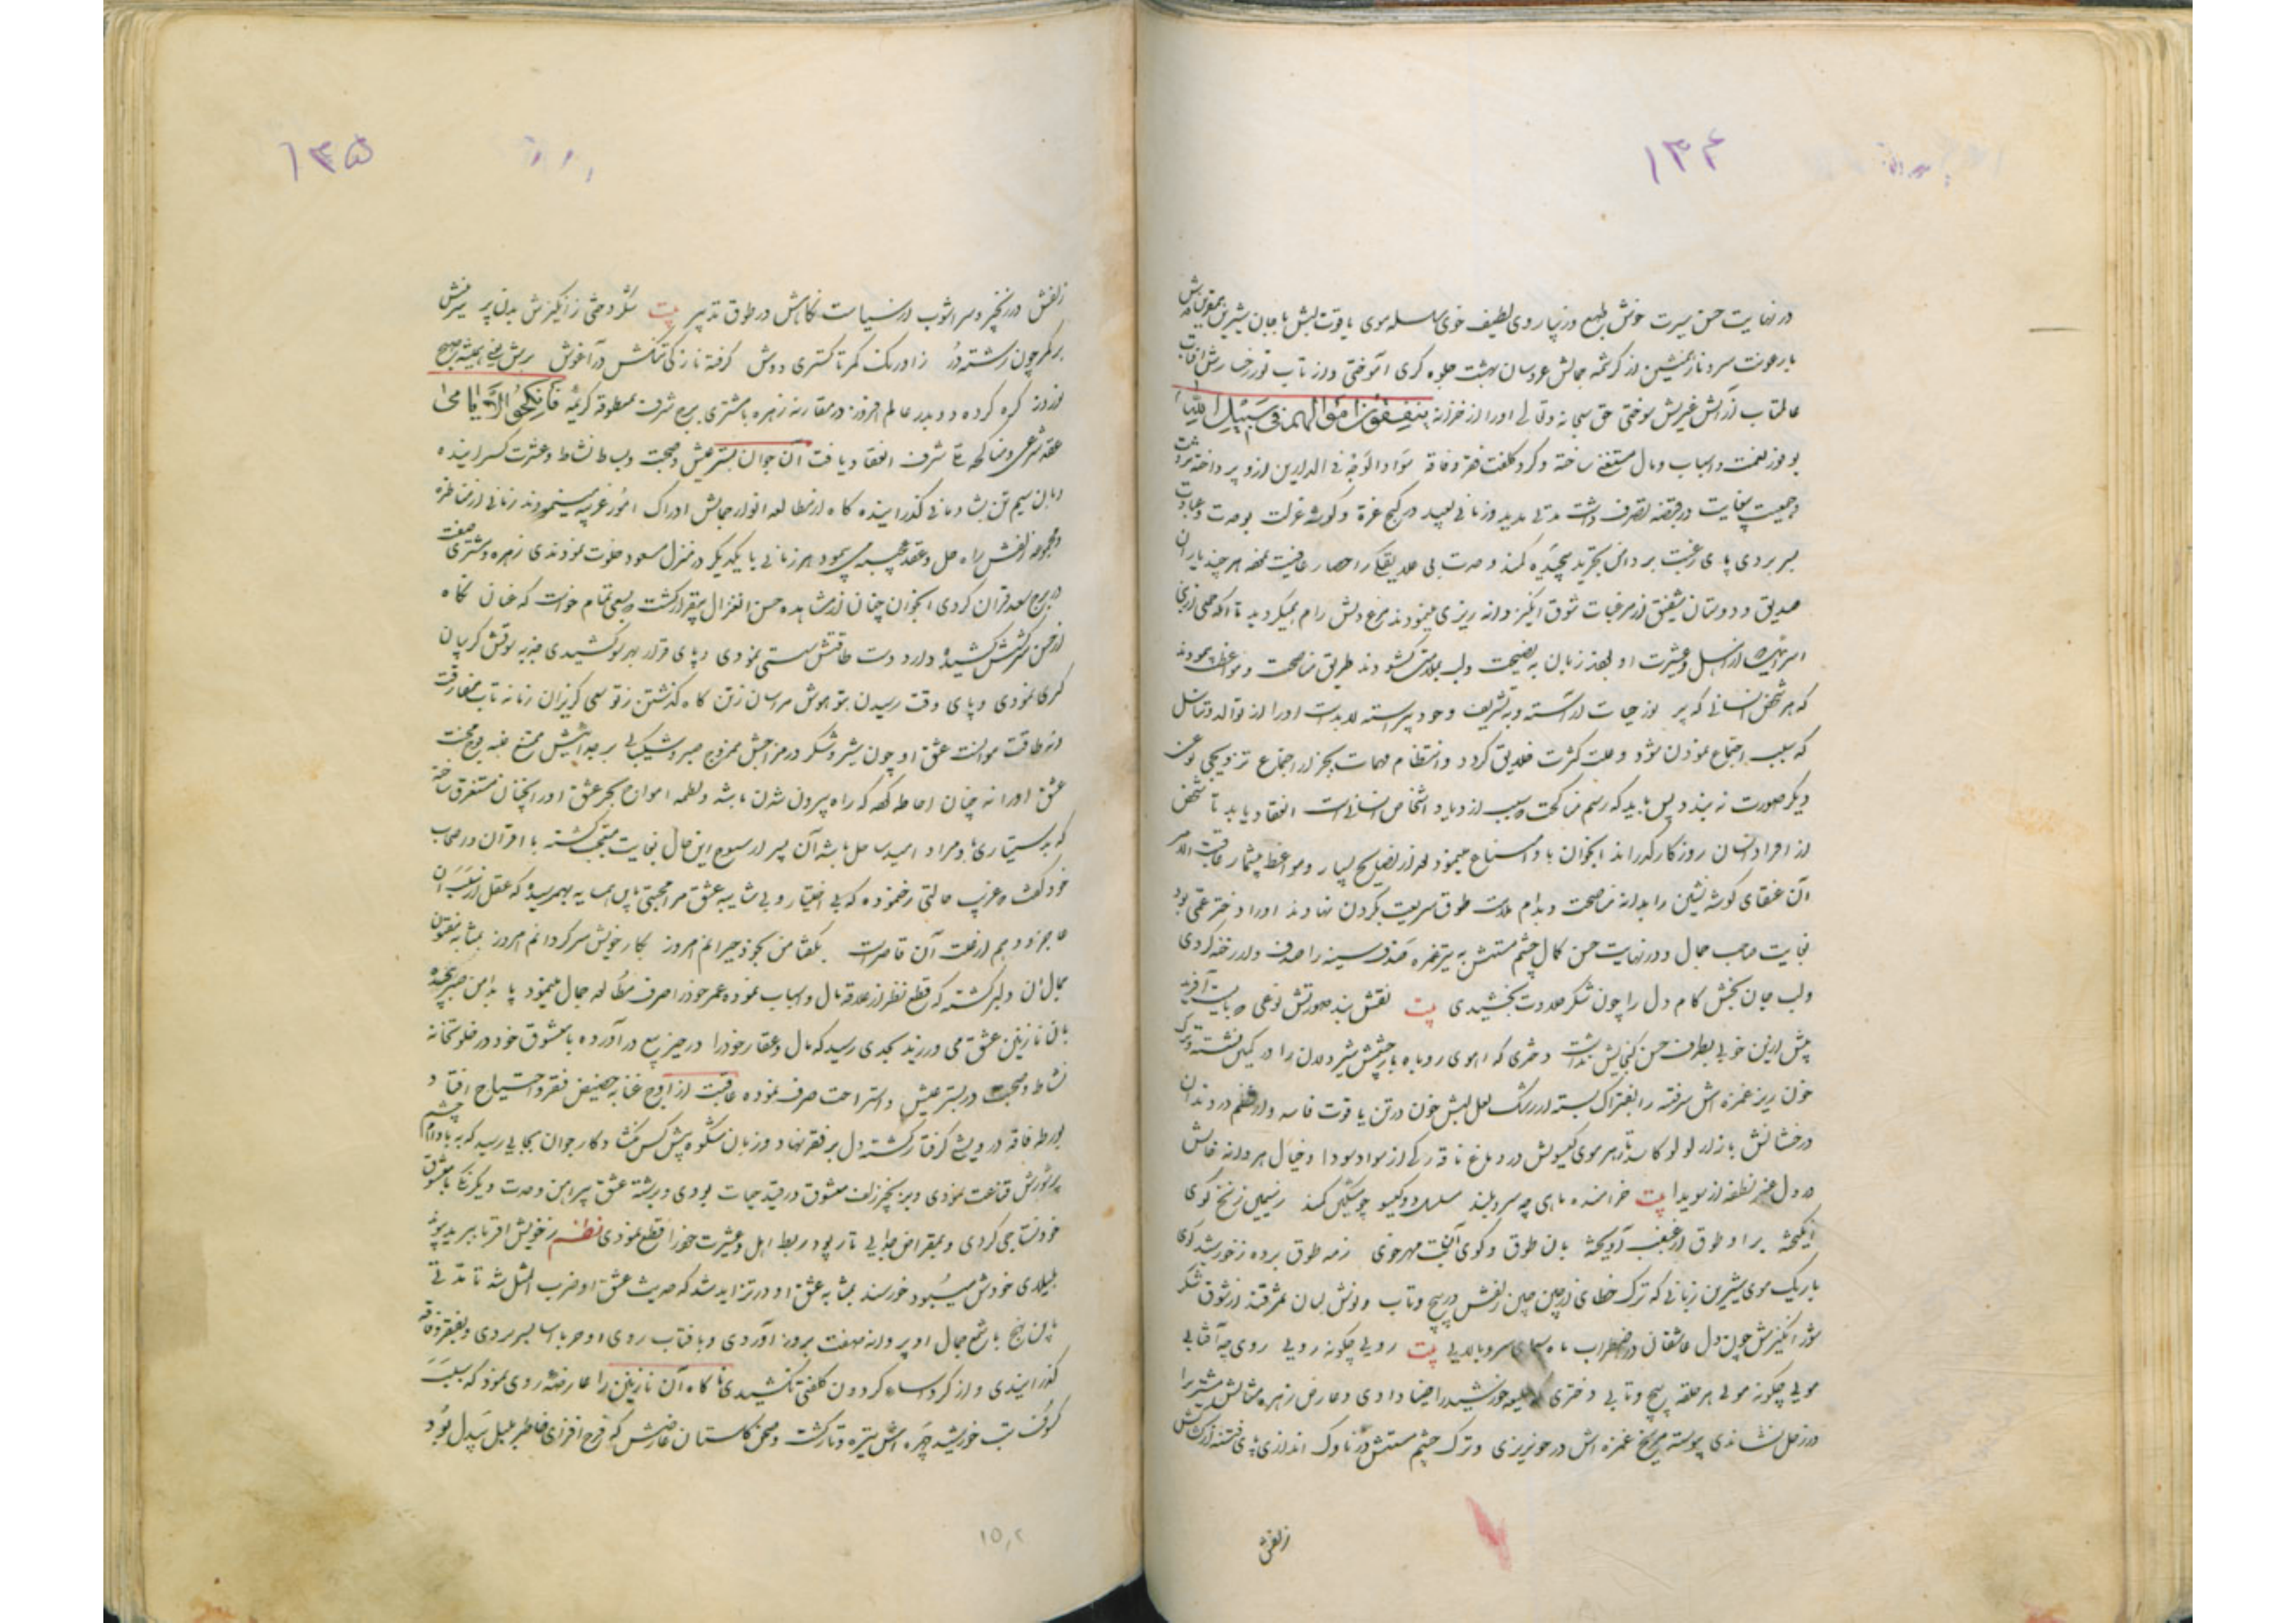 ۱۳۴
در نهایت حسن سیرت خوش طبع و زیبا روی لطیف خوی سلسله موی یاقوت لبش با جان شیرین
با رعونت سرو ناز همنشین از کرشمه جمالش عروسان بهشت جلوه کری آموختی و از تاب نور رخسارش آفتاب
عالمتاب آتش غیرتش سوختی حق سبحانه و تعالی او را از خزانه ینفقون اموالهم فی سبیل الله
بوفور نعمت و اسباب و مال مستغنی ساخته و کرد کلفت فقر و فاقه سواد الوجه فی الدارین ازو پرداخته
و جمعیت بغایت در قبضه تصرف داشت مدتی مدید و زمانی بعید در کنج عزة و کوشه عزلت بوحدت و عبادت
بسر بردی پای رغبت بر دامن تجرید پیچیده کمند وحدت بی علایقی را حصار عافیت هر چند یاران
صدیق و دوستان شفیق از مرغبات شوق انکیز دانه ریزی مینمودند مرغ دلش رام نمیکردید تا آنکه جمعی از
از اهل و عشرت او زبان به نصیحت و لب بملامت کشودند طریق مناصحت و مواعظت پیمودند
که هر شخص انسانی که بر نور حیات آراسته و به تشریف وجود پیراسته لابدست او را از توالد و تناسل
که سبب اجتماع نمودن شود و علت کثرت خلایق کردد و انتظام مهمات بجز از اجتماع تزویجی نوعی
دیکر صورت نه بندد پس باید که رسم مناکحت که سبب ازدیاد اشخاص انسانست انعقاد یابد تا شخص
از افراد انسان روزکار کذراند آنجوان ابا و امتناع مینمود بعد از نصایح بسیار و مواعظ بیشمار عاقبت الامر
آن عنقای کوشه نشین را بدانه مناصحت و بدام ملامت طوق شریعت بکردن نهادند او را دختر عمی بود
بغایت صاحب جمال و در نهایت حسن کمال چشم مستش به تیر غمزه صدف سینه را هدف دلدر خنه کردی
و لب جان بخش کام دل را چون شکر حلاوت بخشیدی بیت نقش بند صورتش نوعی که بایست آفرید
پیش ازین خوبی بطرف حسن کنجایش نداشت دختری که آهوی روباه باز چشمش شیردلان را در کمین نشسته و ترک
خون ریز غمزه اش سرفتنه را بفتراک بسته از رشک لعل لبش خون در تن یاقوت فاسد و از نظم در دندان
درخشانش بازار لولو کاسد از هر موی کیسویش در دماغ نافه رکی از سواد سودا و خیال هر دانه خالش
در دل عنبر نطفه از سویدا بیت خرامنده ماهی چو سرو بلند مسلسل دو کیسو چو مشکین کمند ز سیمین زنخ کوی
انکیخته برو طوق از غبغب آویخته بدان طوق و کوی آن بت مهرجوی ز مه طوق برده ز خورشید کوی
باریک موی شیرین زبانی که ترک خطای از چین چین زلفش در پیچ و تاب و نوش لبان سمرقند از شوق شکر
شور انکیزش چون دل عاشقان در اضطراب ماه سیمای سرو بالایی بیت رویی چکونه رویی روی چو آفتابی
مویی چکونه مویی هر حلقه پیچ و تابی دختری که خورشید را ضیا دادی و عارض زهره مثالش مشتری را
در زحل نشاندی پیوسته مریخ غمزه اش در خونریزی و ترک چشم مستش در ناوک اندازی
زلفش
۱۳۵
زلفش در زنجیر و سر آشوب از سیاست نکاهش در طوق تدبیر بیت
بر کمر چون رشته در ز اورنک کمر تا کستری دوش کرفته نازکی تنکش در آغوش
نوروز کره کرده و دو بدر عالم افروز در مقارنه زهره با مشتری ببرج شرف بمنطوقه کریمه فانکحوا الایامی
عقد شرعی و مناکحه شرف انعقاد یافت آن جوان بستر عیش و صحبت و بساط نشاط و عشرت کسترانیده
و با آن سیم تن بشادمانی کذرانیده کاه از مطالعه انوار جمالش ادراک امور غریبه مینمودند زمانی از مناظره
مجموعه زلفش راه حل و عقد عجیبه می پیمود هر زمانی با یکدیکر در منزل مسعود خلوت نمودندی زهره و مشتری صفت
در برج سعد قران کردی آنجوان چنان از مشاهده حسن آن غزال بیقرار کشت و بسعی تمام خواست که عنان نکاه
از حسن سرکش کشیده دارد دست طاقتش سستی نمودی و پای قرار بهر سو کشیدی جذبه شوقش کریبان
کری نمودی و پای وقت رسیدن تو هوش مرسان زتن کاه کذشتن ز تو سعی کریزان ز ما نه تاب مفارقت
و نه طاقت موانست عشق او چون شیر و شکر در مزاجش ممزوج صبر و شکیبایی
عشق او را نه چنان احاطه کرده که راه بیرون شدن باشد و لطمه امواج بحر عشق او را آنچنان مستغرق ساخته
که بدستیاری نامراد امید ساحل باشد آن پسر از سنوح این حال بغایت متعجب کشته با اقران و اصحاب
خود کفت که غریب حالتی رخ نموده که بی اختیار و بی شایبه عشق مرا محبتی باین همسایه بهم رسیده که عقل از نسبت آن
عاجز و وهم از غایت آن قاصرست بکفتا من بخود حیرانم امروز بکار خویش سرکردانم امروز بمثابه مفتون
جمال آن دلبر کشته که قطع نظر از علاقه مال و اسباب نموده عمر خود را صرف مطالعه جمال مینمود پا بدامن صبر پیچیده
با آن نازنین عشق می ورزید بحدی رسید که مال و عقار خود را در حیز بیع درآورده با معشوق خود در خلوتخانه
نشاط و صحبت در بستر عیش و استراحت صرف نموده عاقبت از اوج غنا به حضیض فقر و احتیاج افتاد و
بورطه فاقه و درویشی کرفتار کشته دل بر فقر نهاد و زبان شکوه پیش کس نکشاد کار جوان بجایی رسید که به بادام چشم
پرشورش قناعت نمودی و بزنجیر زلف معشوق در قید حیات بودی و برشته عشق پیراهن وحدت و یکرنکی با معشوق
خود نساجی کردی و بمقراض جدایی تار و پود ربط اهل و عشیرت خود را قطع نمودی نظم ز خویش و اقربا ببریده پیوند
بلیلای خودش میبود خورسند بمثابه عشق او در تزاید شد که حدیث عشق او ضرب المثل شد تا مدتی
باین نهج با شمع جمال او پروانه صفت بروز آوردی و با آفتاب روی او حرباآسا بسر بردی و بفقر و فاقه
کذرانیدی و از کرد کردون کلفتی نکشیدی ناکاه آن نازنین را عارضه روی نمود که بسبب
کسوف تب خورشید چهره اش تیره و تار کشت و صحن کلستان عارضش که فرح افزای خاطر بلبل بیدل بود
۱۵۲